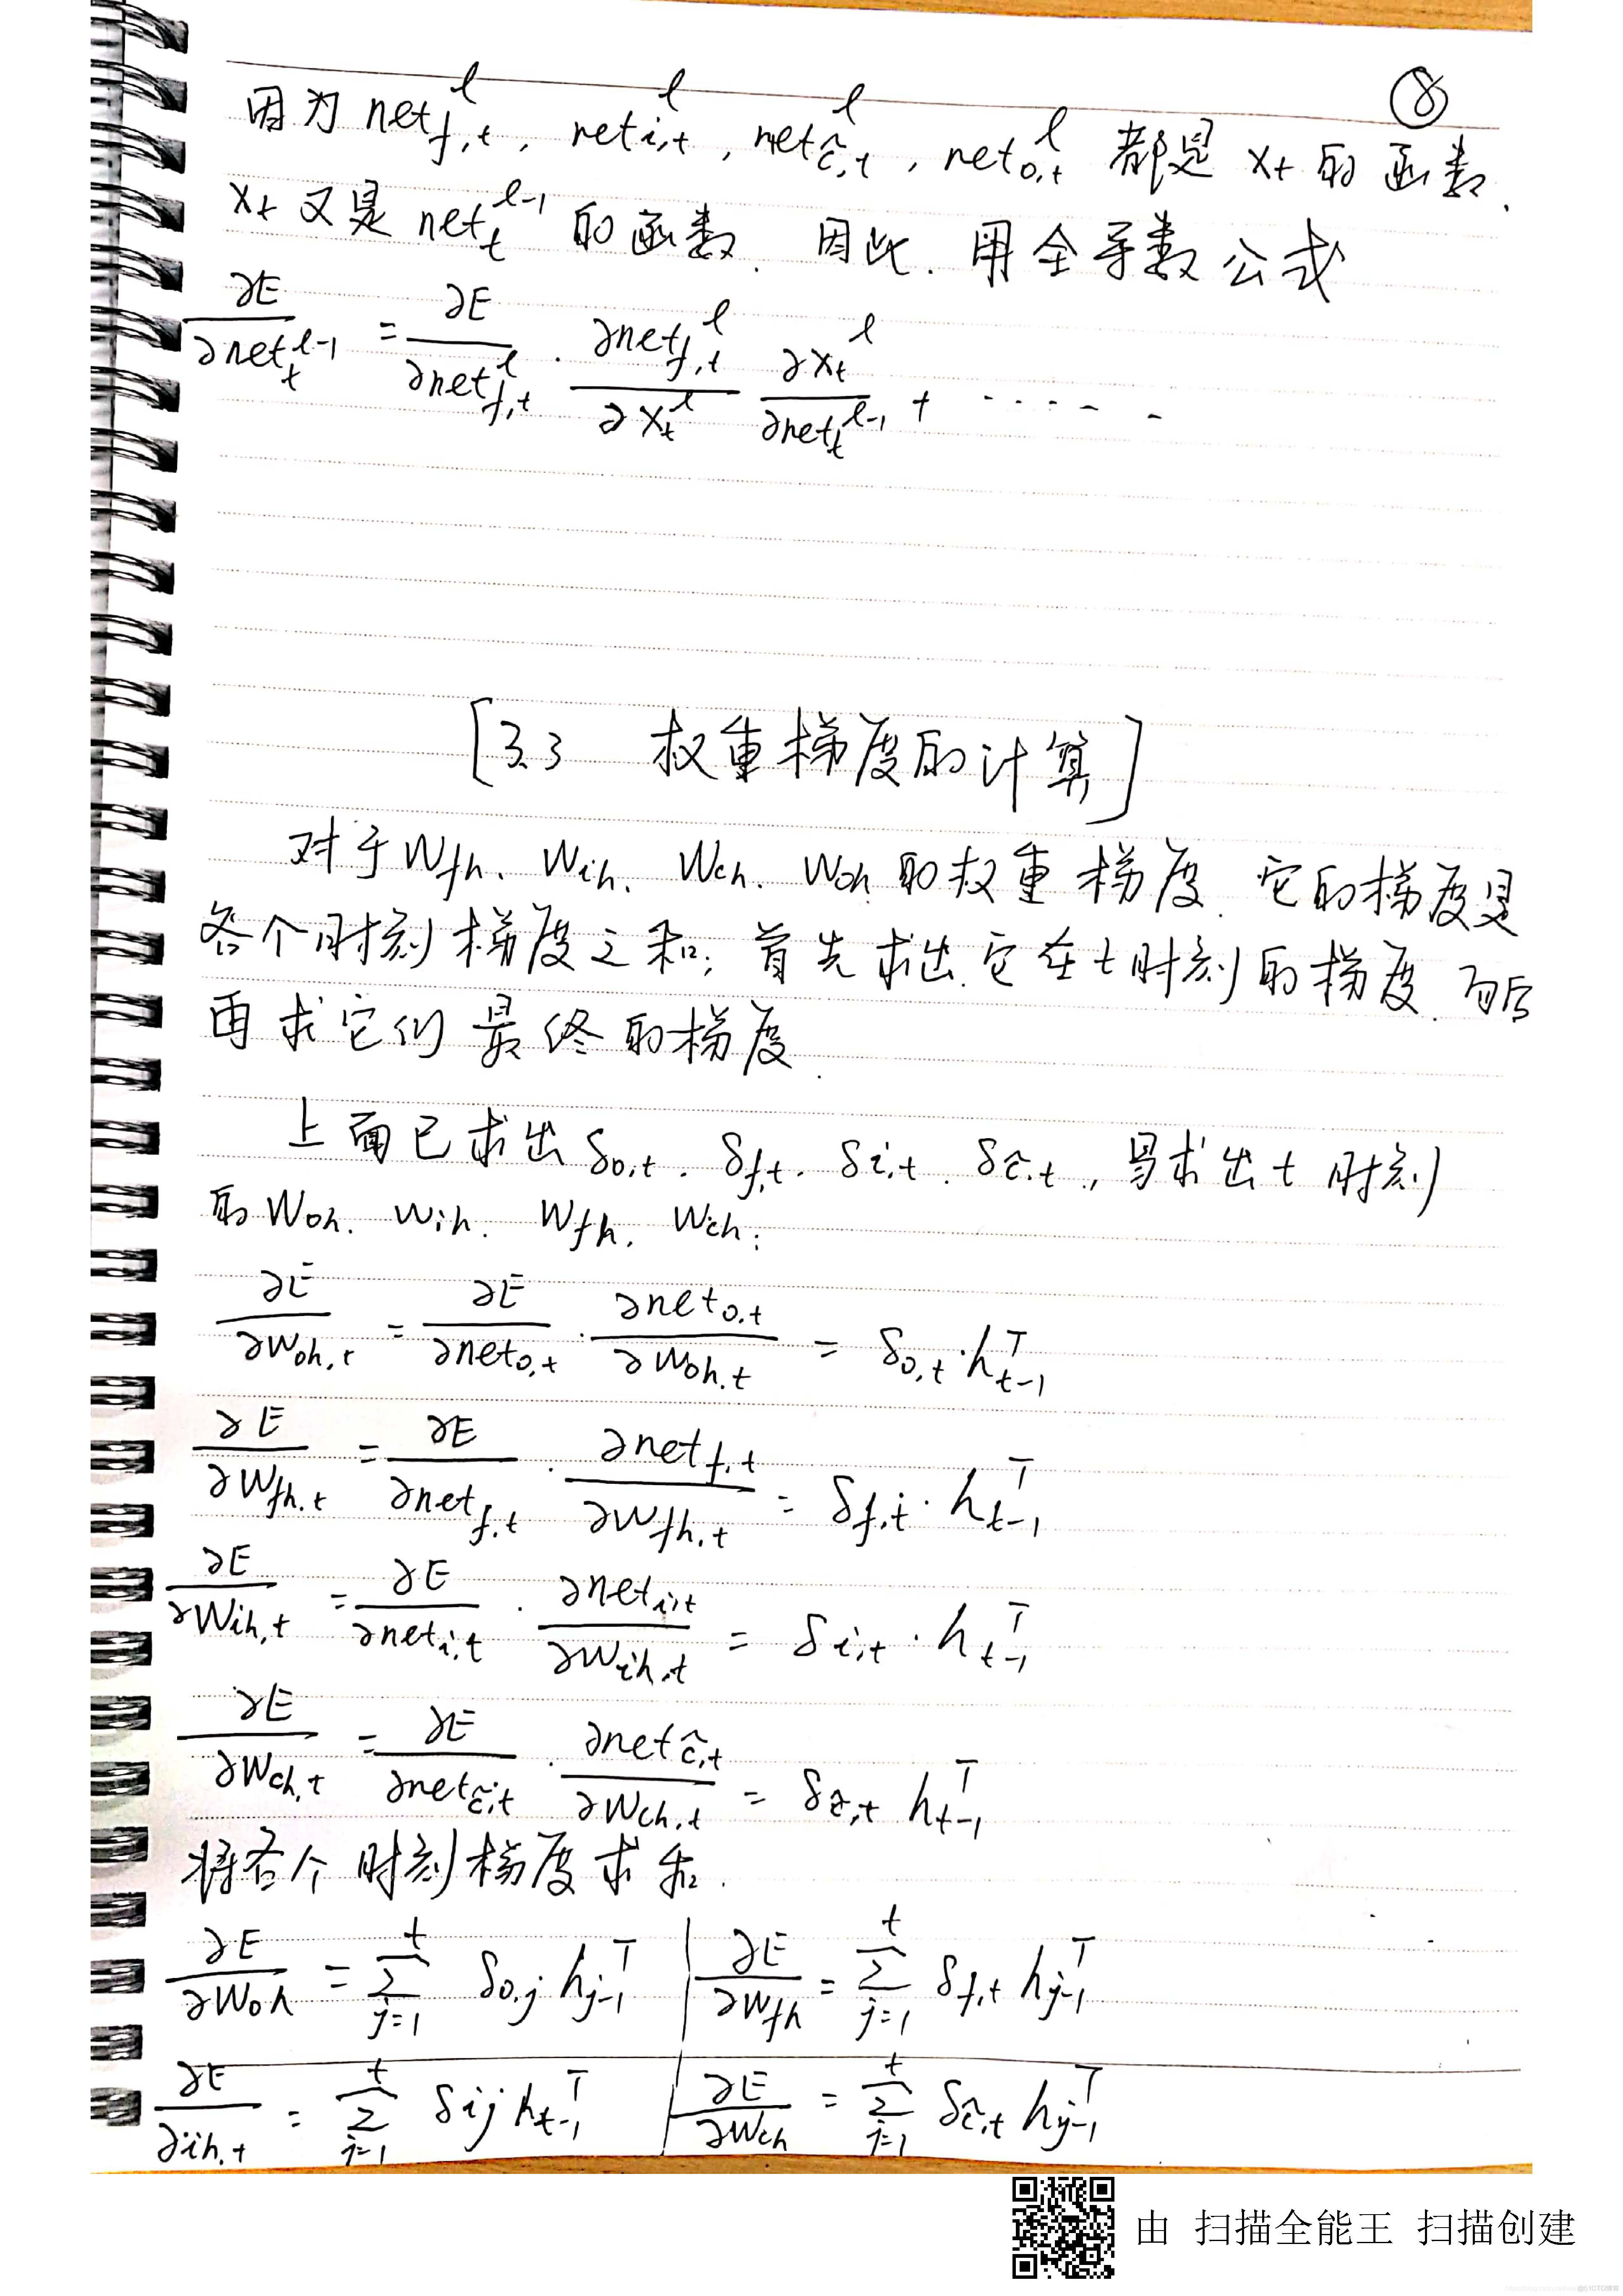 ⑧
因为 net_{f,t}^l, net_{i,t}^l, net_{ĉ,t}^l, net_{o,t}^l 都是 x_t 的函数.
x_t 又是 net_t^{l-1} 的函数. 因此. 用全导数公式
∂E/∂net_t^{l-1} = ∂E/∂net_{f,t}^l · ∂net_{f,t}^l/∂x_t^l ∂x_t^l/∂net_t^{l-1} + ······
[3.3 权重梯度的计算]
对于 W_{fh}、W_{ih}、W_{ch}、W_{oh} 的权重梯度. 它的梯度是
各个时刻梯度之和; 首先求出它在 t 时刻的梯度. 而后
再求它们最终的梯度.
上面已求出 δ_{o,t}. δ_{f,t}. δ_{i,t}. δ_{ĉ,t}, 易求出 t 时刻
的 W_{oh}. W_{ih}. W_{fh}. W_{ch}:
∂E/∂W_{oh,t} = ∂E/∂net_{o,t} · ∂net_{o,t}/∂W_{oh,t} = δ_{o,t} · h_{t-1}^T
∂E/∂W_{fh,t} = ∂E/∂net_{f,t} · ∂net_{f,t}/∂W_{fh,t} = δ_{f,t} · h_{t-1}^T
∂E/∂W_{ih,t} = ∂E/∂net_{i,t} · ∂net_{i,t}/∂W_{ih,t} = δ_{i,t} · h_{t-1}^T
∂E/∂W_{ch,t} = ∂E/∂net_{ĉ,t} · ∂net_{ĉ,t}/∂W_{ch,t} = δ_{ĉ,t} h_{t-1}^T
将各个时刻梯度求和.
∂E/∂W_{oh} = Σ_{j=1}^t δ_{o,j} h_{j-1}^T | ∂E/∂W_{fh} = Σ_{j=1}^t δ_{f,t} h_{j-1}^T
∂E/∂_{ih,t} = Σ_{j=1}^t δ_{ij} h_{t-1}^T | ∂E/∂W_{ch} = Σ_{j=1}^t δ_{ĉ,t} h_{j-1}^T
由 扫描全能王 扫描创建
@51CTO博客